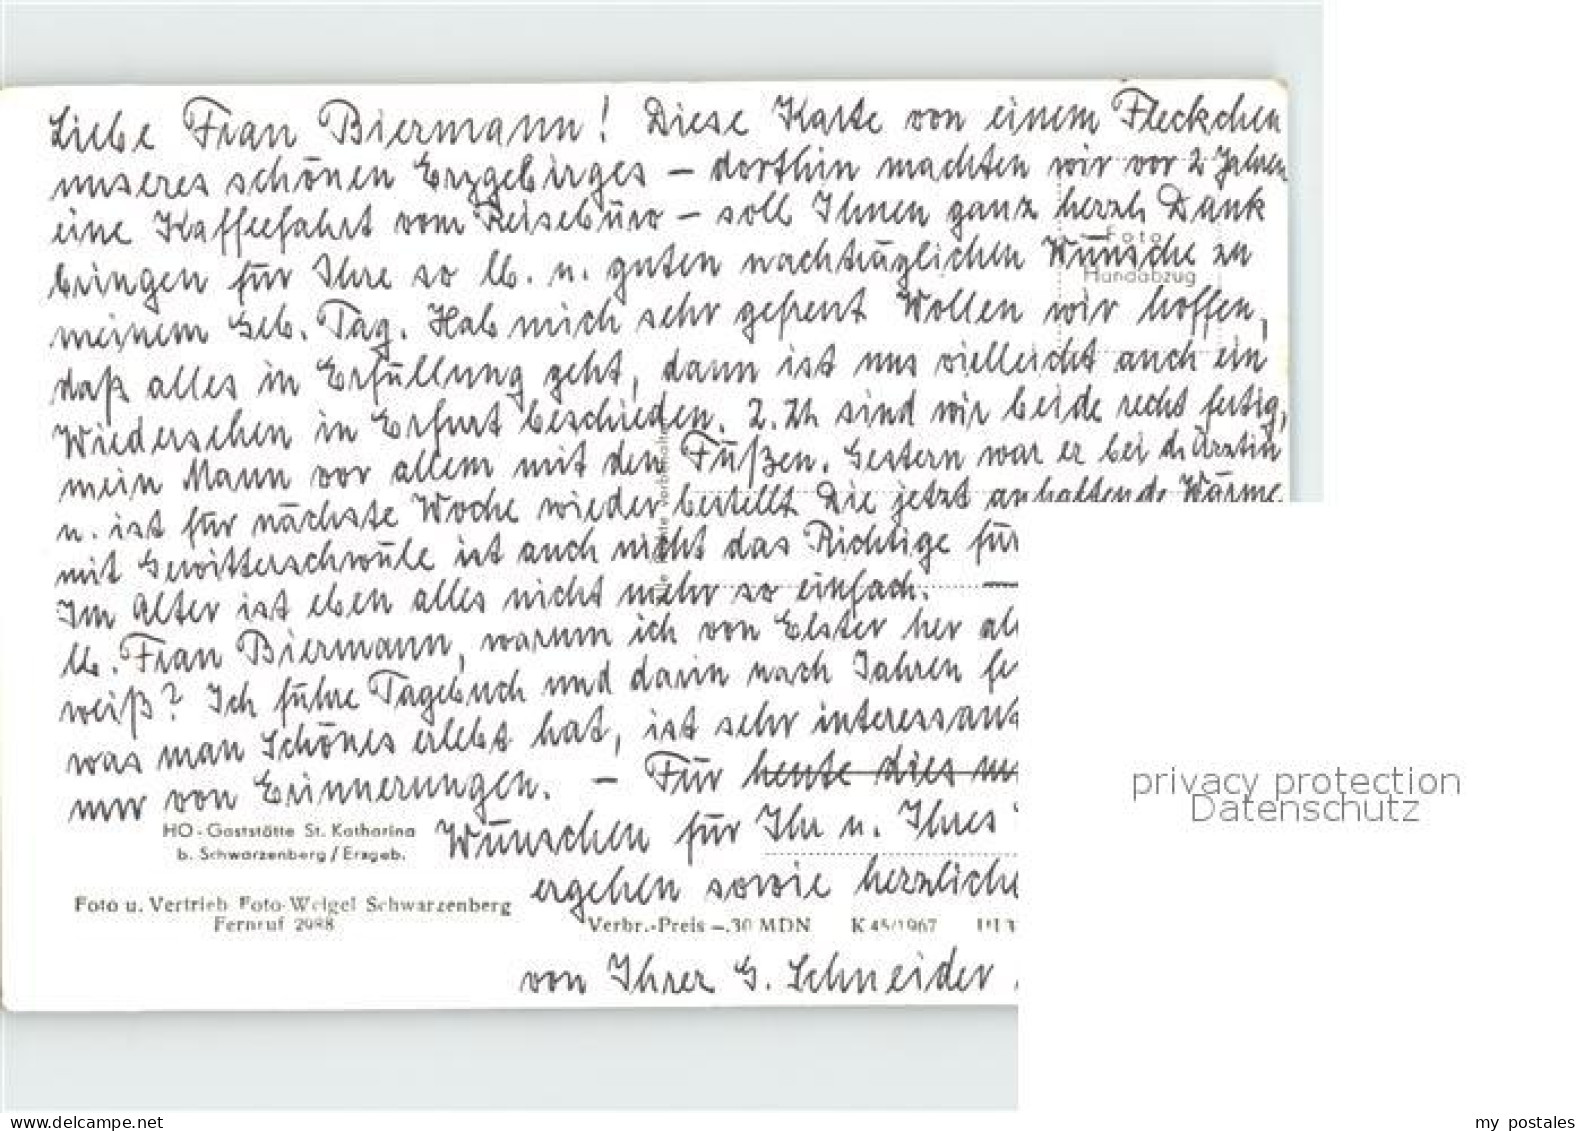 Liebe Frau Biermann! Diese Karte von einem Fleckchen
unseres schönen Erzgebirges – dorthin machten wir vor 2 Jahren
eine Kaffeefahrt vom Reisebüro – soll Ihnen ganz herzl. Dank
Foto
bringen für Ihre so lb. u. guten nachträglichen Wünsche zu
Handabzug
meinem Geb. Tag. Hab mich sehr gefreut Wollen wir hoffen,
daß alles in Erfüllung geht, dann ist uns vielleicht auch ein
Wiedersehen in Erfurt beschieden. Z. Zt. sind wir beide recht fertig,
mein Mann vor allem mit den Füßen. Gestern war er bei d. Ärztin
u. ist für nächste Woche wieder bestellt. Die jetzt anhaltende Wärme
mit Gewitterschwüle ist auch nicht das Richtige für
Im Alter ist eben alles nicht mehr so einfach. —
lb. Frau Biermann, warum ich von Elster her
weiß? Ich führe Tagebuch und darin nach Jahren
was man Schönes erlebt hat, ist sehr interessant
nur von Erinnerungen. – Für heute dies
HO-Gaststätte St. Katharina
b. Schwarzenberg / Erzgeb.
Wünschen für Ihr u. Ihres
ergehen sowie herzliche
Foto u. Vertrieb Foto-Weigel Schwarzenberg
Fernruf 2988
Verbr.-Preis –.30 MDN K 45/1967
von Ihrer G. Schneider
privacy protection
Datenschutz
my postales